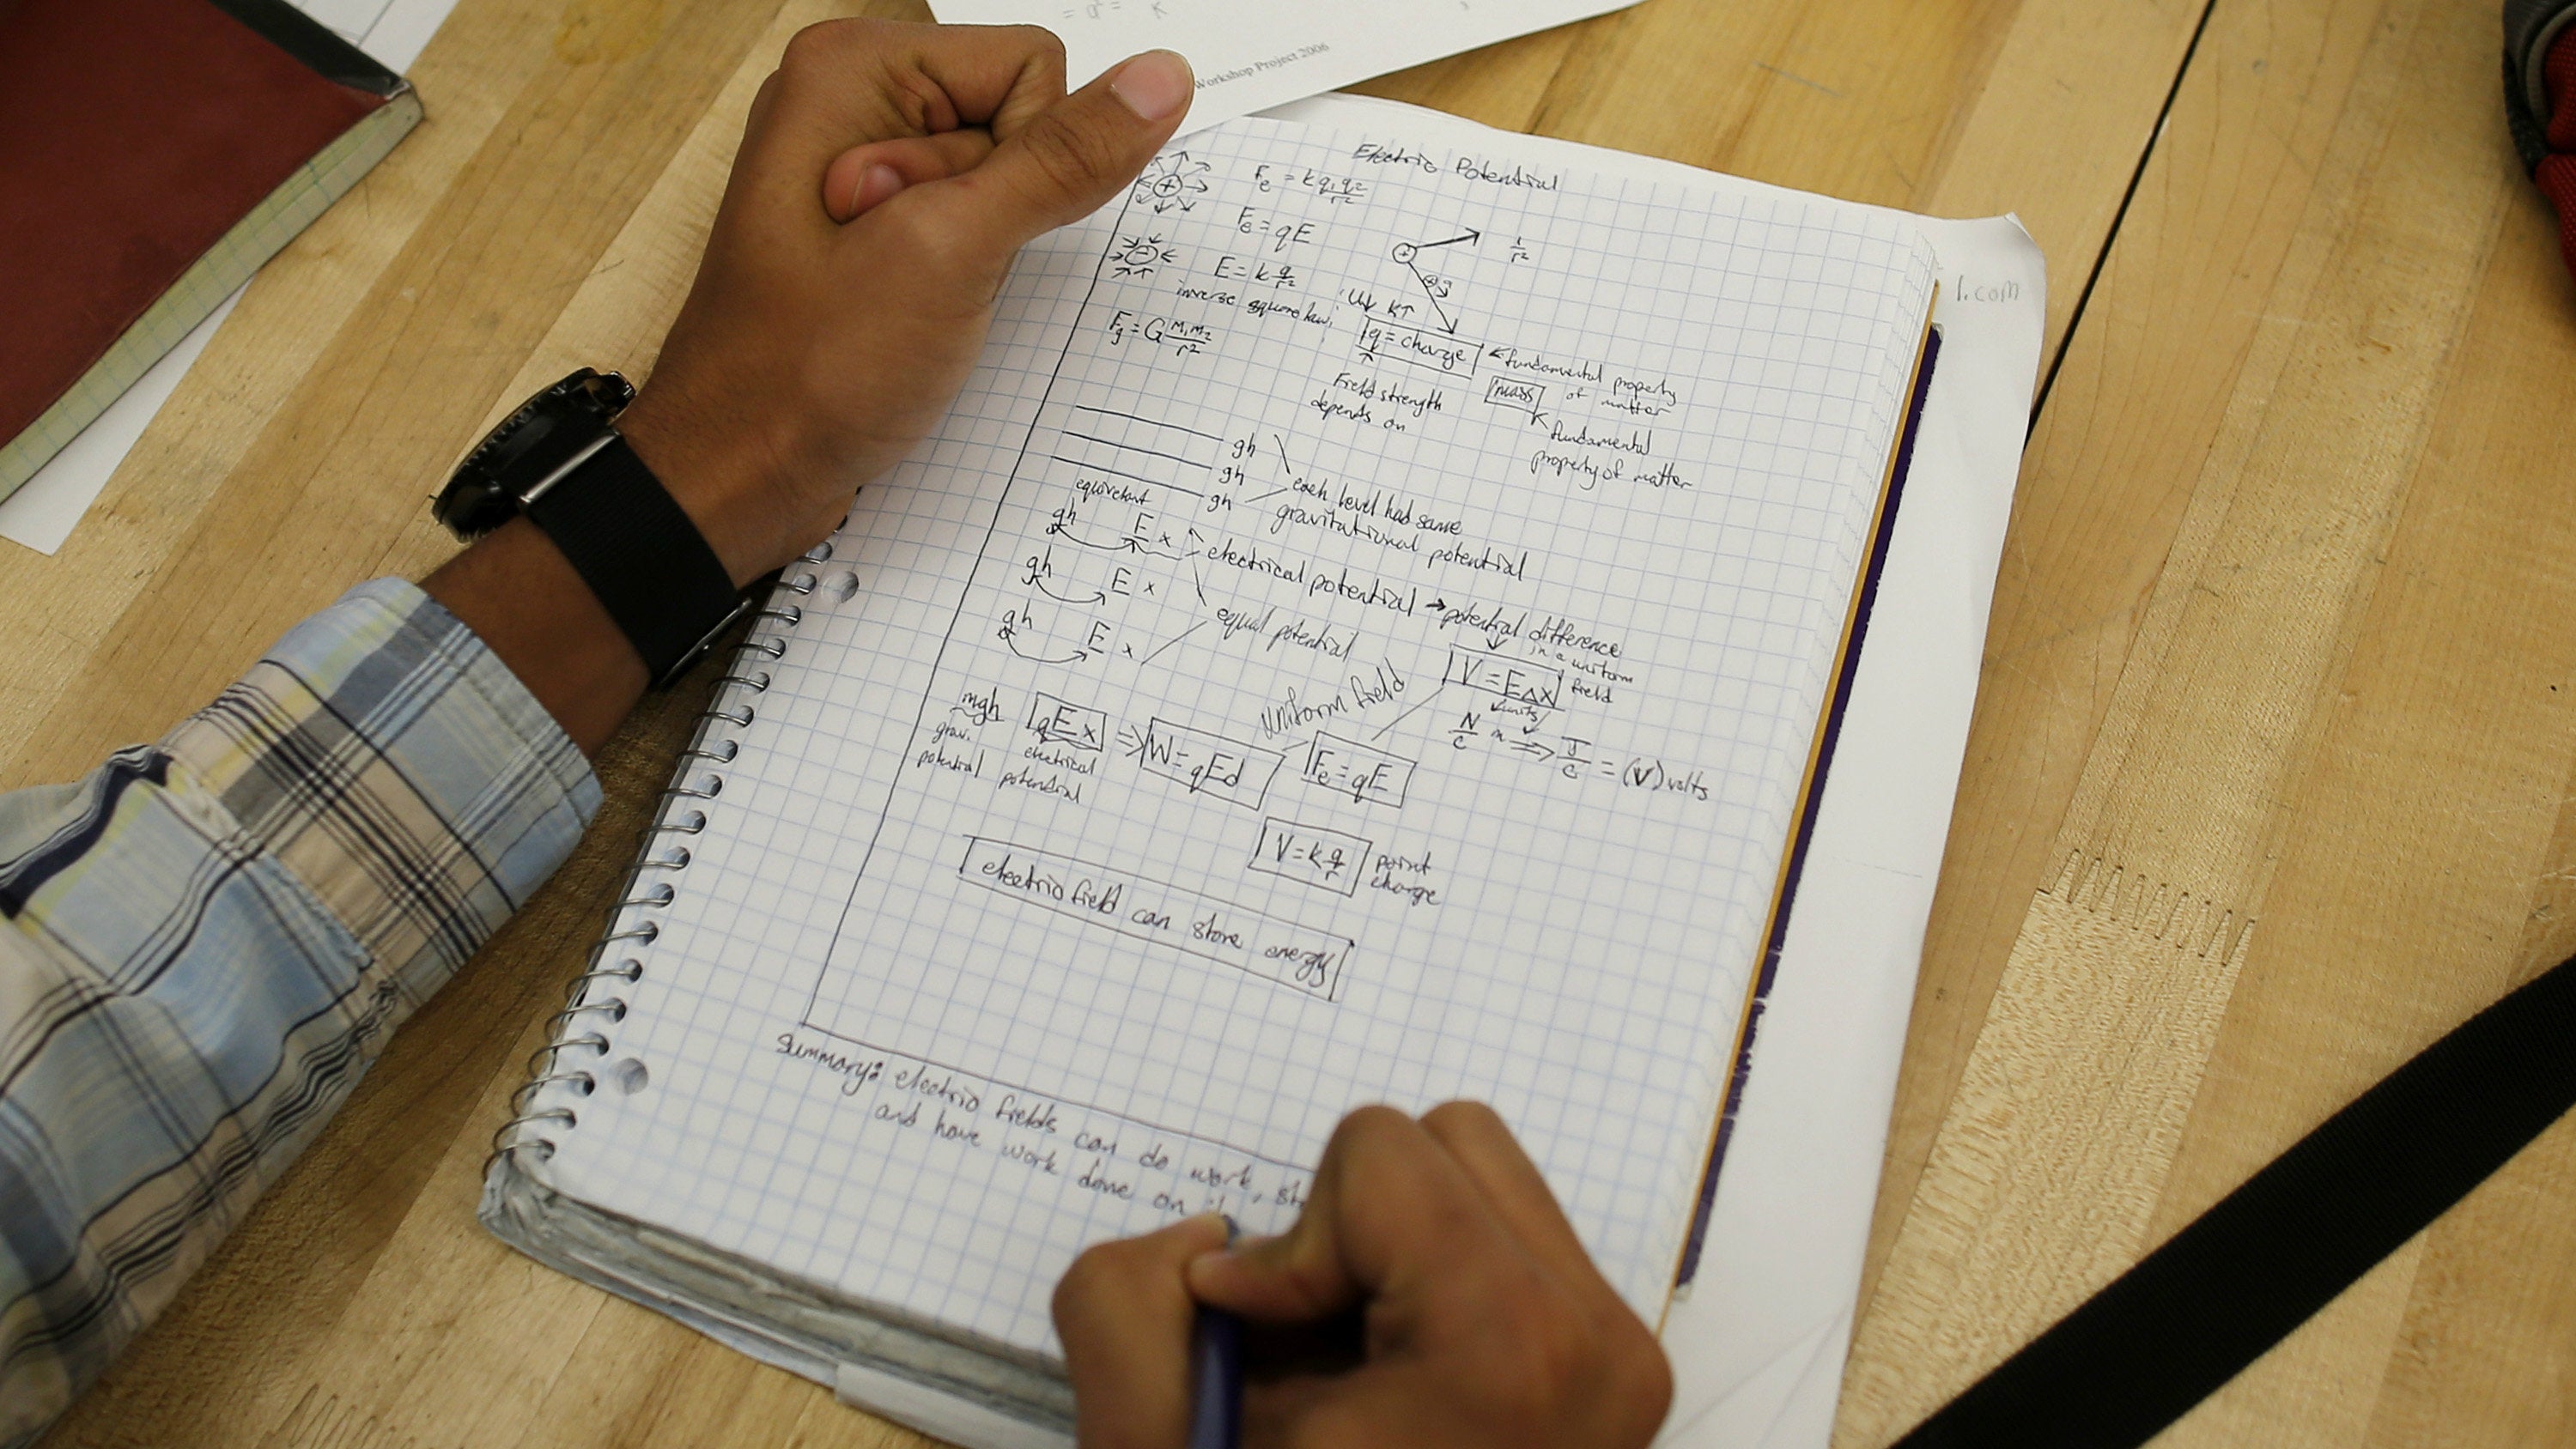 Workshop Project 2006
l.com
Electric Potential
+
Fe = k q1 q2 / r²
Fe = qE
E = k q/r²
inverse square law
Fg = G m1 m2 / r²
+
1/r²
U↓ K↑
q = charge
← fundamental property
of matter
mass
fundamental
property of matter
Field strength
depends on
gh
gh
gh
each level had same
gravitational potential
equivalent
gh E x
gh E x
gh E x
electrical potential → potential difference
in a uniform
field
equal potential
V = EΔx
units
N/C m ⇒ J/C = (V) volts
uniform field
mgh
grav.
potential
qEx
electrical
potential
⇒ W = qEd
Fe = qE
V = k q/r
point
charge
electric field can store energy
Summary: electric fields can do work,
and have work done on